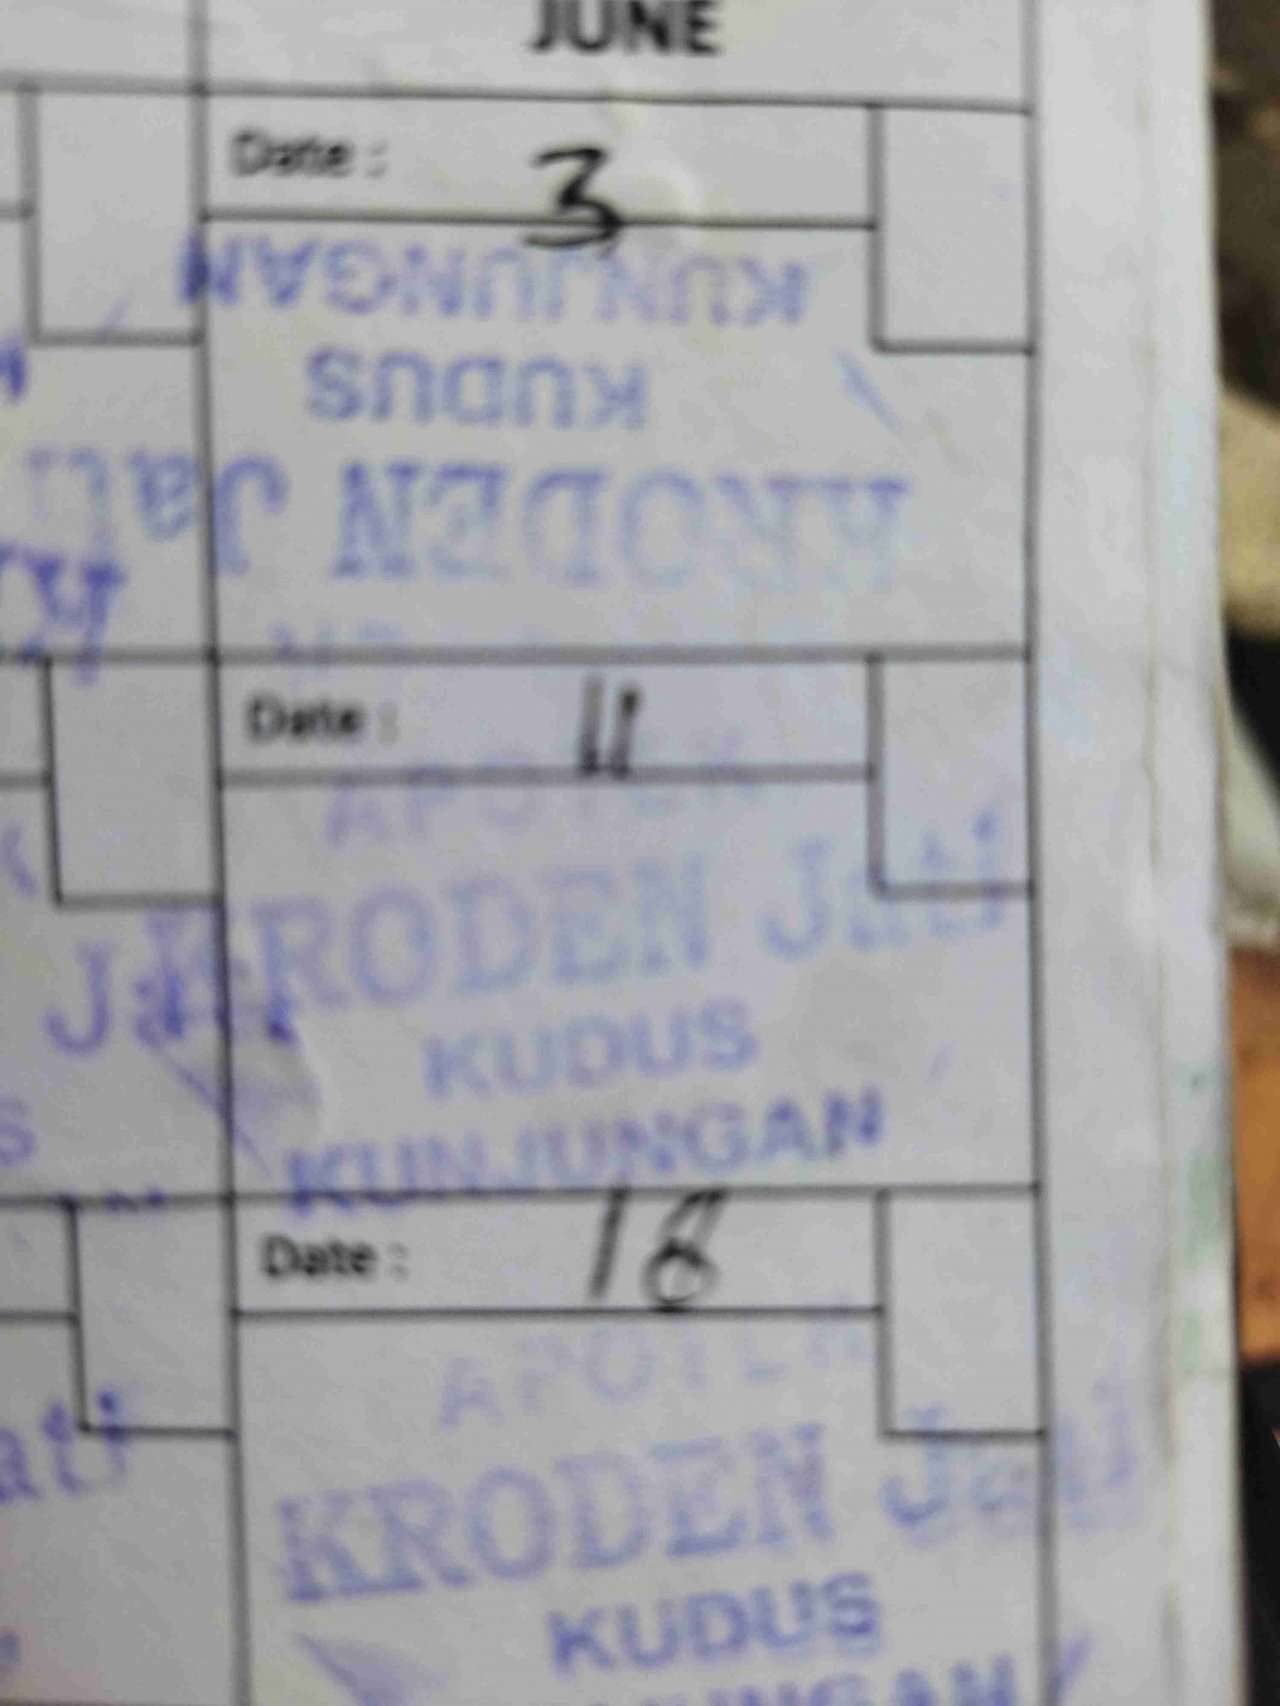 JUNE
Date : 3
KUNJUNGAN
KUDUS
KRODEN Jati
Date : 11
APOTEK
KRODEN Jati
KUDUS
KUNJUNGAN
Date : 18
APOTEK
KRODEN Jati
KUDUS
KUNJUNGAN